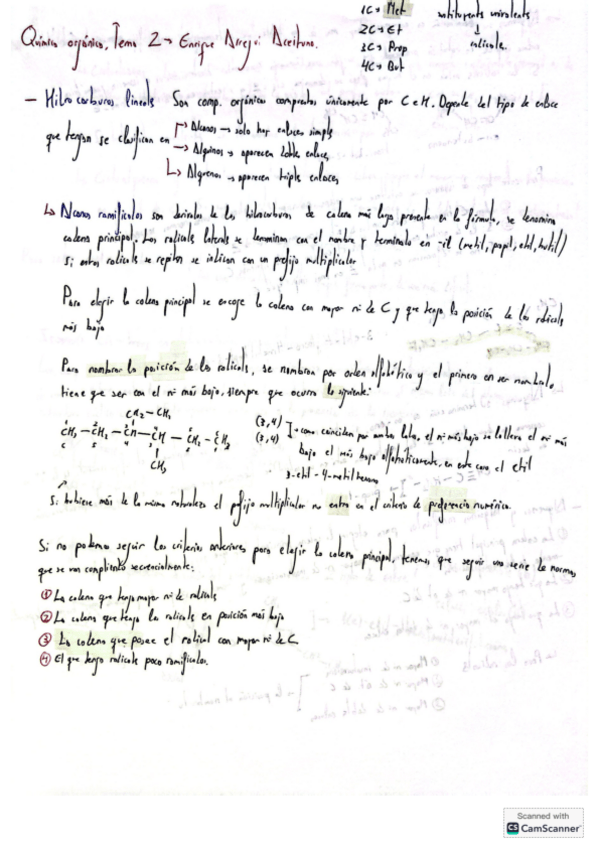 1C → Met
2C → Et
3C → Prop
4C → But
sustituyentes univalentes
↓
radicale.
Química orgánica, Tema 2 → Enrique Arregui Aceituno.
— Hidrocarburos lineals Son comp. orgánicos compuestos únicamente por C e H. Depende del tipo de enlace
que tengan se clasifican en
→ Alcanos → solo hay enlaces simples
→ Alquinos → aparecen doble enlaces
↳ Alquenos → aparecen triple enlaces
↳ Alcanos ramificados son derivados de los hidrocarburos de cadena más larga presente en la fórmula, se denomina
cadena principal. Los radicals laterals se denominan con el nombre y terminado en -il (metil, propil, etil, butil)
Si estos radicals se repiten se indican con un prefijo multiplicador
Para elegir la cadena principal se encoge la cadena con mayor nº de C y que tenga la posición de los radicals
más bajo
Para nombrar la posición de los radicals, se nombran por orden alfabético y el primero en ser nombrado,
tiene que ser con el nº más bajo, siempre que ocurra lo siguiente:
CH2 – CH3
CH3 – CH2 – CH – CH – CH2 – CH3
CH3
(3,4)
(3,4)
→ como coinciden por ambos lados, el nº más bajo se lo lleva el nº más
bajo el más bajo alfabéticamente, en este caso el etil
3-etil-4-metilhexano
Si hubiese más de la misma naturaleza el prefijo multiplicador no entra en el criterio de preferencia numérica.
Si no podemos seguir los criterios anteriores para elegir la cadena principal, tenemos que seguir una serie de normas
que se van cumpliendo secuencialmente:
① La cadena que tenga mayor nº de radicals
② La cadena que tenga los radicals en posición más bajo
③ La cadena que posee el radical con mayor nº de C
④ El que tenga radicals poco ramificados.
Scanned with
CS CamScanner